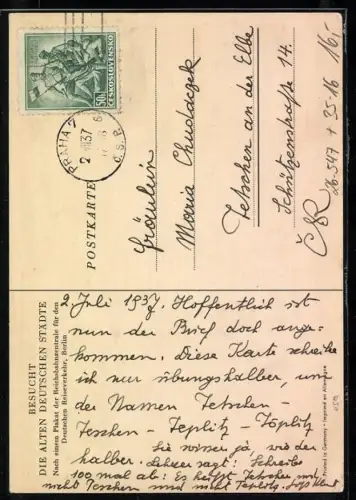 50h
ČESKOSLOVENSKO
PRAHA
2 VII 37
Č.S.R.
POSTKARTE
Fräulein
Maria Chudaczek
Tetschen an der Elbe
Schützenstraße 14.
ČSR
26.547 + 35.16
16,-
BESUCHT
DIE ALTEN DEUTSCHEN STÄDTE
Nach einem Plakat der Reichsbahnzentrale für den
Deutschen Reiseverkehr, Berlin
2. Juli 1937. Hoffentlich ist
nun der Brief doch ange-
kommen. Diese Karte schreibe
ich nur übungshalber, um
der Namen Tetschen-
Teschen - Teplitz - Töplitz
halber. Sie wissen ja wie der
Lehrer sagt: Schreibe
100 mal ab: Es heißt Tetschen und
nicht Teschen und nicht Teplitz.
Printed in Germany - Imprimé en Allemagne